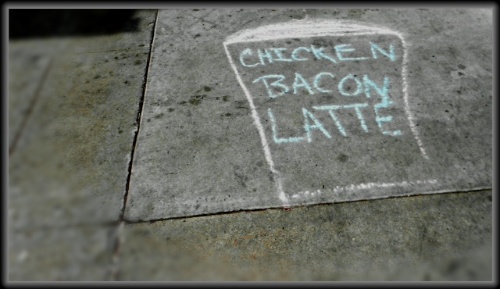 CHICKEN
BACON
LATTE